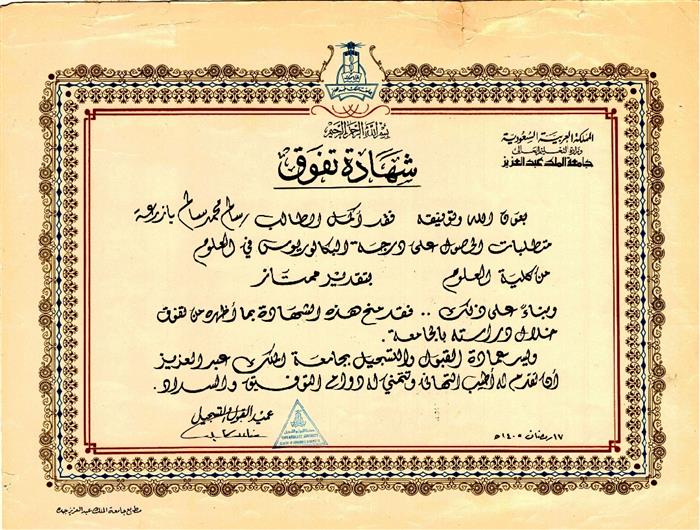 بسم الله الرحمن الرحيم
المملكة العربية السعودية
وزارة التعليم العالي
جامعة الملك عبد العزيز
شهادة تفوق
بعون الله وتوفيقه فقد أكمل الطالب / سالم محمد سالم بازرعة
متطلبات الحصول على درجة البكالوريوس في العلوم
من كلية العلوم بتقدير ممتاز
وبناءً على ذلك .. فقد منح هذه الشهادة بما أظهره من تفوق
خلال دراسته بالجامعة.
وليسر عمادة القبول والتسجيل بجامعة الملك عبد العزيز
أن تقدم له أطيب التهاني وتتمنى له دوام التوفيق والسداد.
عميد القبول والتسجيل
١٧ رمضان ١٤٠٥ هـ
مطابع جامعة الملك عبد العزيز جدة